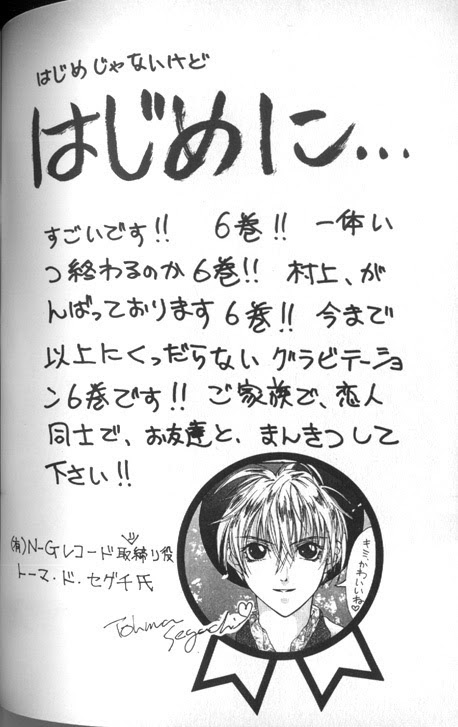 はじめじゃないけど
はじめに...
すごいです!! 6巻!! 一体い
つ終わるのか6巻!! 村上、が
んばっております6巻!! 今まで
以上にくっだらないグラビテーショ
ン6巻です!! ご家族で、恋人
同士で、お友達と、まんきつして
下さい!!
キミ、かわいいね♡
(有)N-Gレコード取締り役
トーマ・ド・セグチ氏
Tohma Seguchi♡